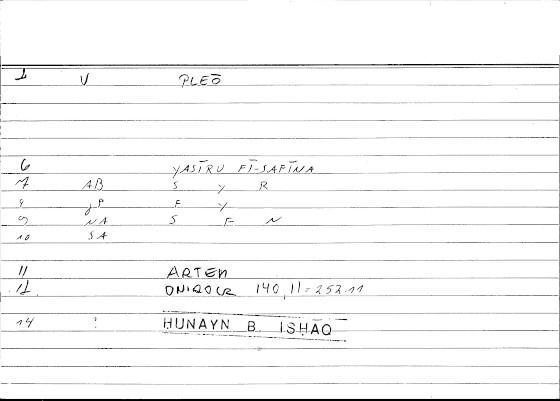 1 V PLEŌ
6 YASĪRU FĪ-SAFĪNA
7 AB S Y R
8 JP F Y
9 NA S F N
10 SA
11 ARTEM
12 ONIROCR 140,11=252.11
14 : HUNAYN B. ISHĀQ